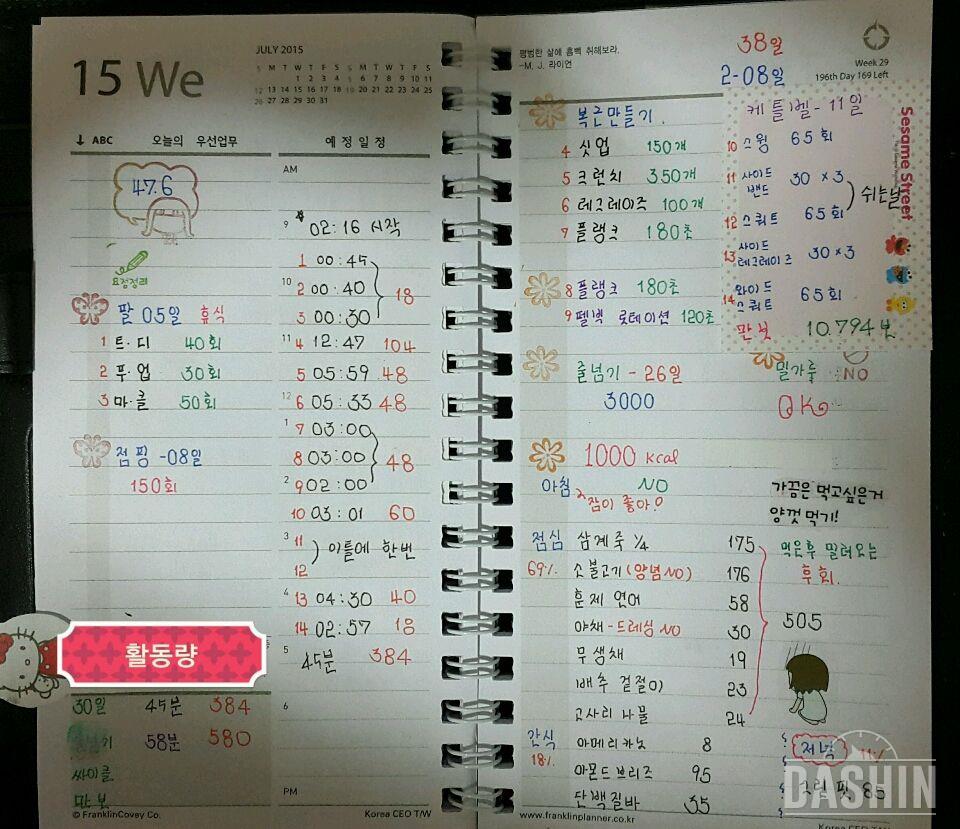 JULY 2015
15 We
S M T W T F S S M T W T F S
1 2 3 4 5 6 7 8 9 10 11
12 13 14 15 16 17 18 19 20 21 22 23 24 25
26 27 28 29 30 31
↓ ABC 오늘의 우선업무
47.6
요점정리
팔 05일 휴식
1 트·디 40회
2 푸·업 30회
3 마·클 50회
점핑 -08일
150회
활동량
30일 45분 384
58분 580
싸이클
만보
© FranklinCovey Co.
예정일정
AM
9 02:16 시작
1 00:45
10 2 00:40 18
3 00:30
11 4 12:47 104
5 05:59 48
12 6 05:33 48
1 7 03:00
8 03:00 48
2 9 02:00
10 03:01 60
3 11 이틀에 한번
12
4 13 04:30 40
14 02:57 18
5 45분 384
6
PM
Korea CEO T/W
평범한 삶에 흠뻑 취해보라.
-M. J. 라이언
38일
2-08일
Week 29
196th Day 169 Left
복근만들기
4 싯업 150개
5 크런치 350개
6 레그레이즈 100개
7 플랭크 180초
8 플랭크 180초
9 펠빅 로테이션 120초
케틀벨 - 11일
10 스윙 65회
11 사이드 밴드 30 x 3
12 스쿼트 65회
쉬는날
13 사이드 레그레이즈 30 x 3
14 와이드 스쿼트 65회
만보 10.794보
Sesame Street
줄넘기 - 26일
3000
밀가루 NO
OK
1000 kcal
아침 NO
잠이 좋아?
가끔은 먹고싶은거
양껏 먹기!
점심 삼계죽 ¼ 175
69% 소불고기 (양념NO) 176
훈제 연어 58
야채 - 드레싱 NO 30
무생채 19
배추 겉절이 23
고사리 나물 24
505
먹은후 밀려오는
후회.
간식 아메리카노 8
18% 아몬드브리즈 95
단백질바 35
저녁 11%
85
DASHIN
www.franklinplanner.co.kr
Korea CEO T/W